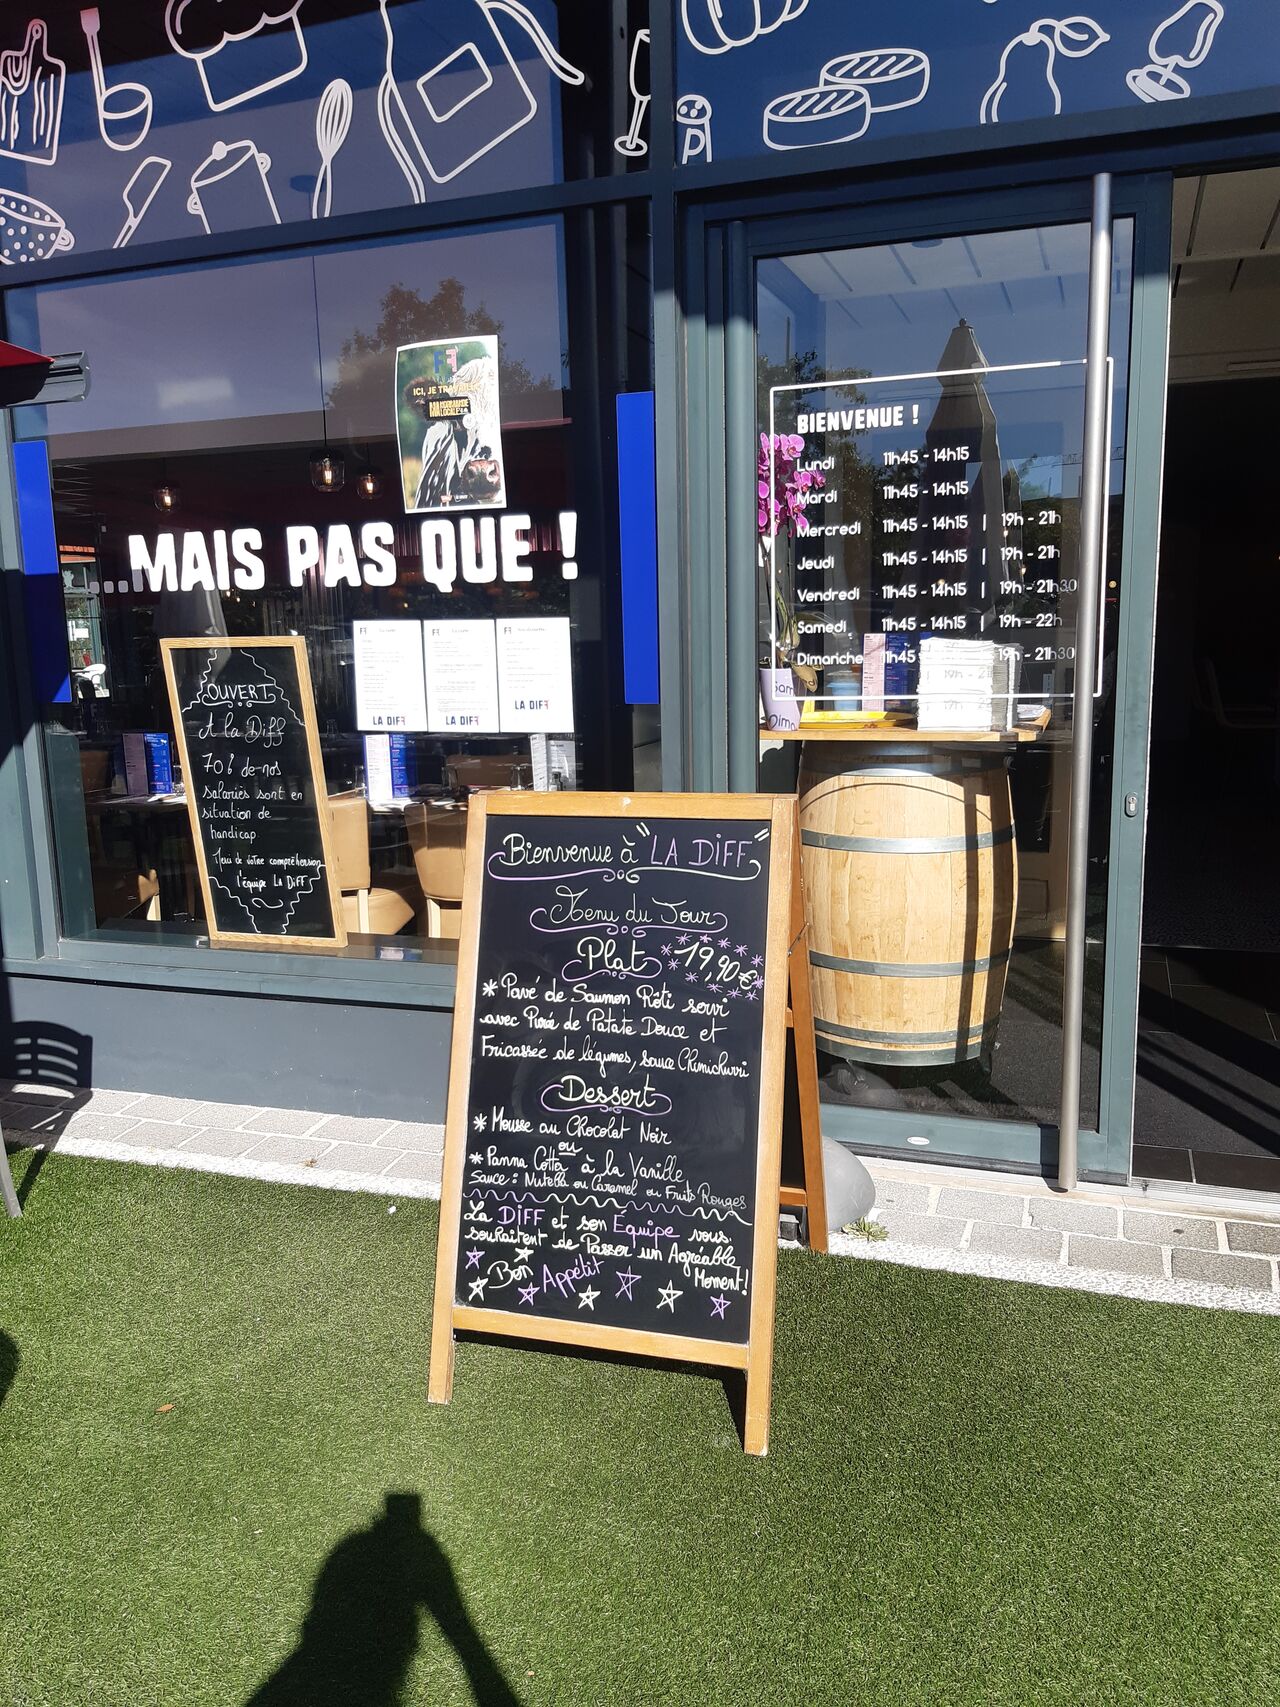 ICI, JE TRAVAILLE
...MAIS PAS QUE !
LA DIFF
LA DIFF
LA DIFF
OUVERT
A la Diff
70% de nos
salariés sont en
situation de
handicap
Merci de votre compréhension
l'équipe La Diff
BIENVENUE !
Lundi 11h45 - 14h15
Mardi 11h45 - 14h15
Mercredi 11h45 - 14h15 | 19h - 21h
Jeudi 11h45 - 14h15 | 19h - 21h
Vendredi 11h45 - 14h15 | 19h - 21h30
Samedi 11h45 - 14h15 | 19h - 22h
Dimanche 11h45
Bienvenue à "LA DiFF"
Menu du Jour
Plat 19,90€
* Pavé de Saumon Rôti servi
avec Purée de Patate Douce et
Fricassée de légumes, sauce Chimichurri
Dessert
* Mousse au Chocolat Noir
ou
* Panna Cotta à la Vanille
Sauce : Nutella ou Caramel ou Fruits Rouges
La DiFF et son Équipe vous
souhaitent de Passer un Agréable
Moment !
Bon Appétit